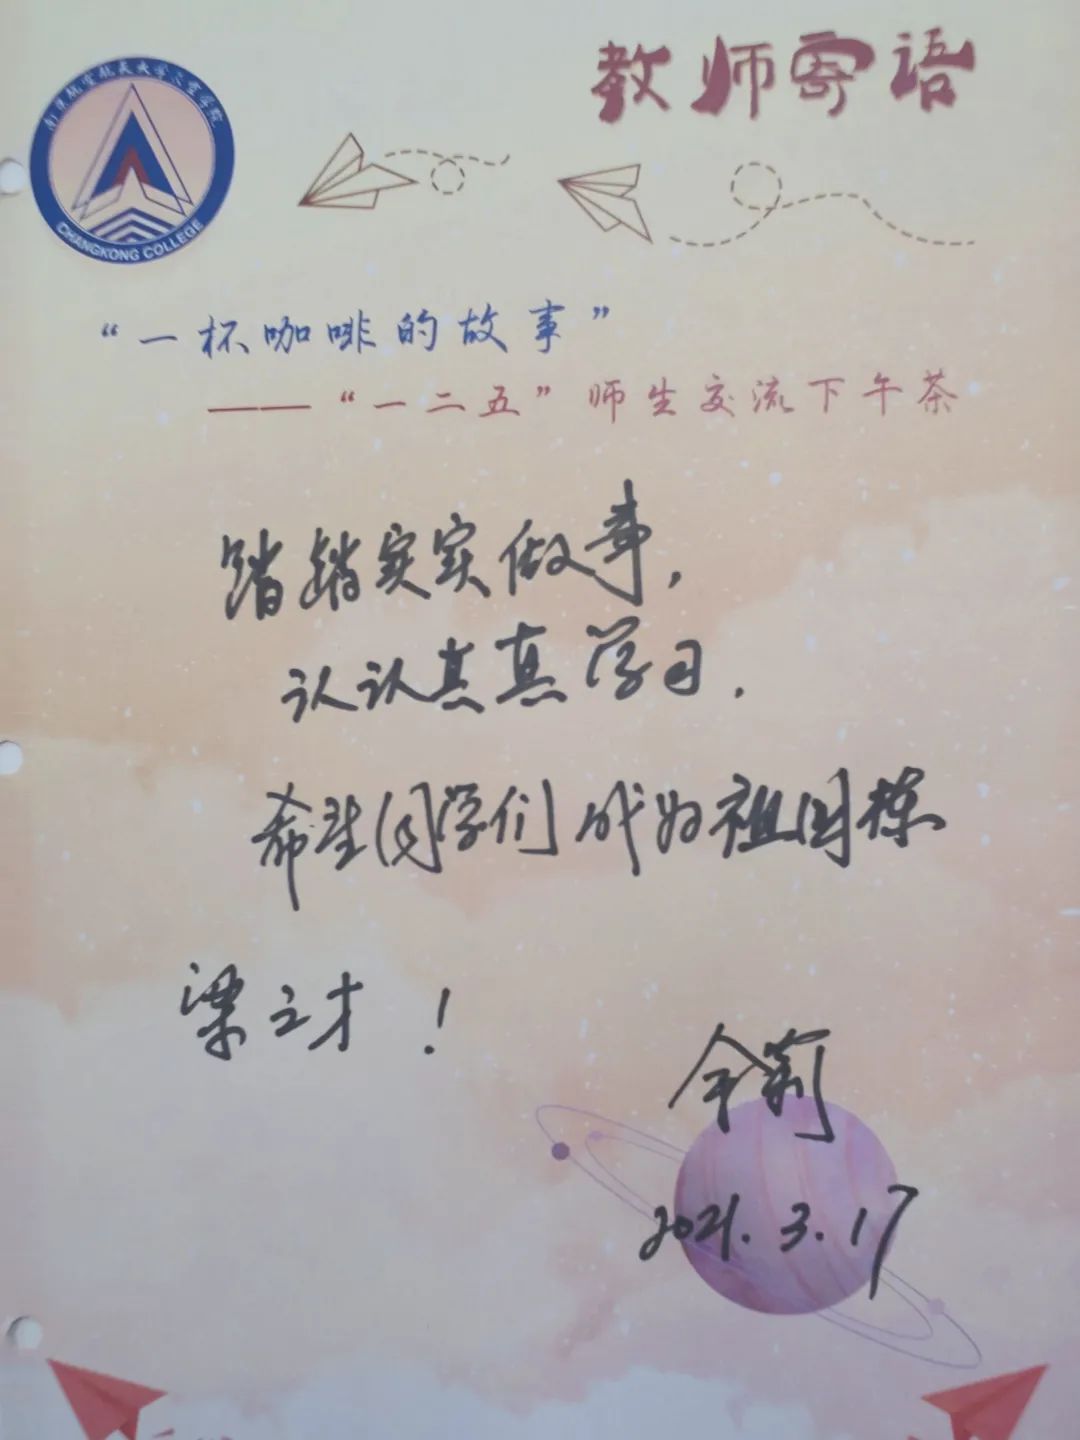 教师寄语
南京航空航天大学长空学院
CHANGKONG COLLEGE
“一杯咖啡的故事”
——“一二五”师生交流下午茶
踏踏实实做事,
认认真真学习.
希望同学们成为祖国栋
梁之才!
莉
2021.3.17